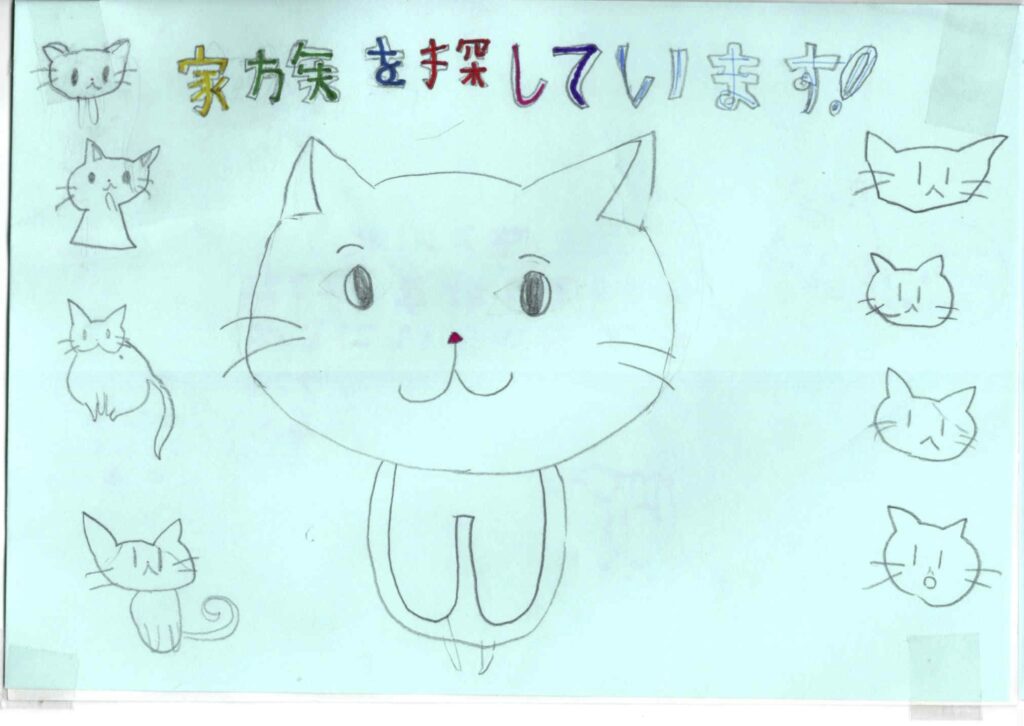 家族を探しています!